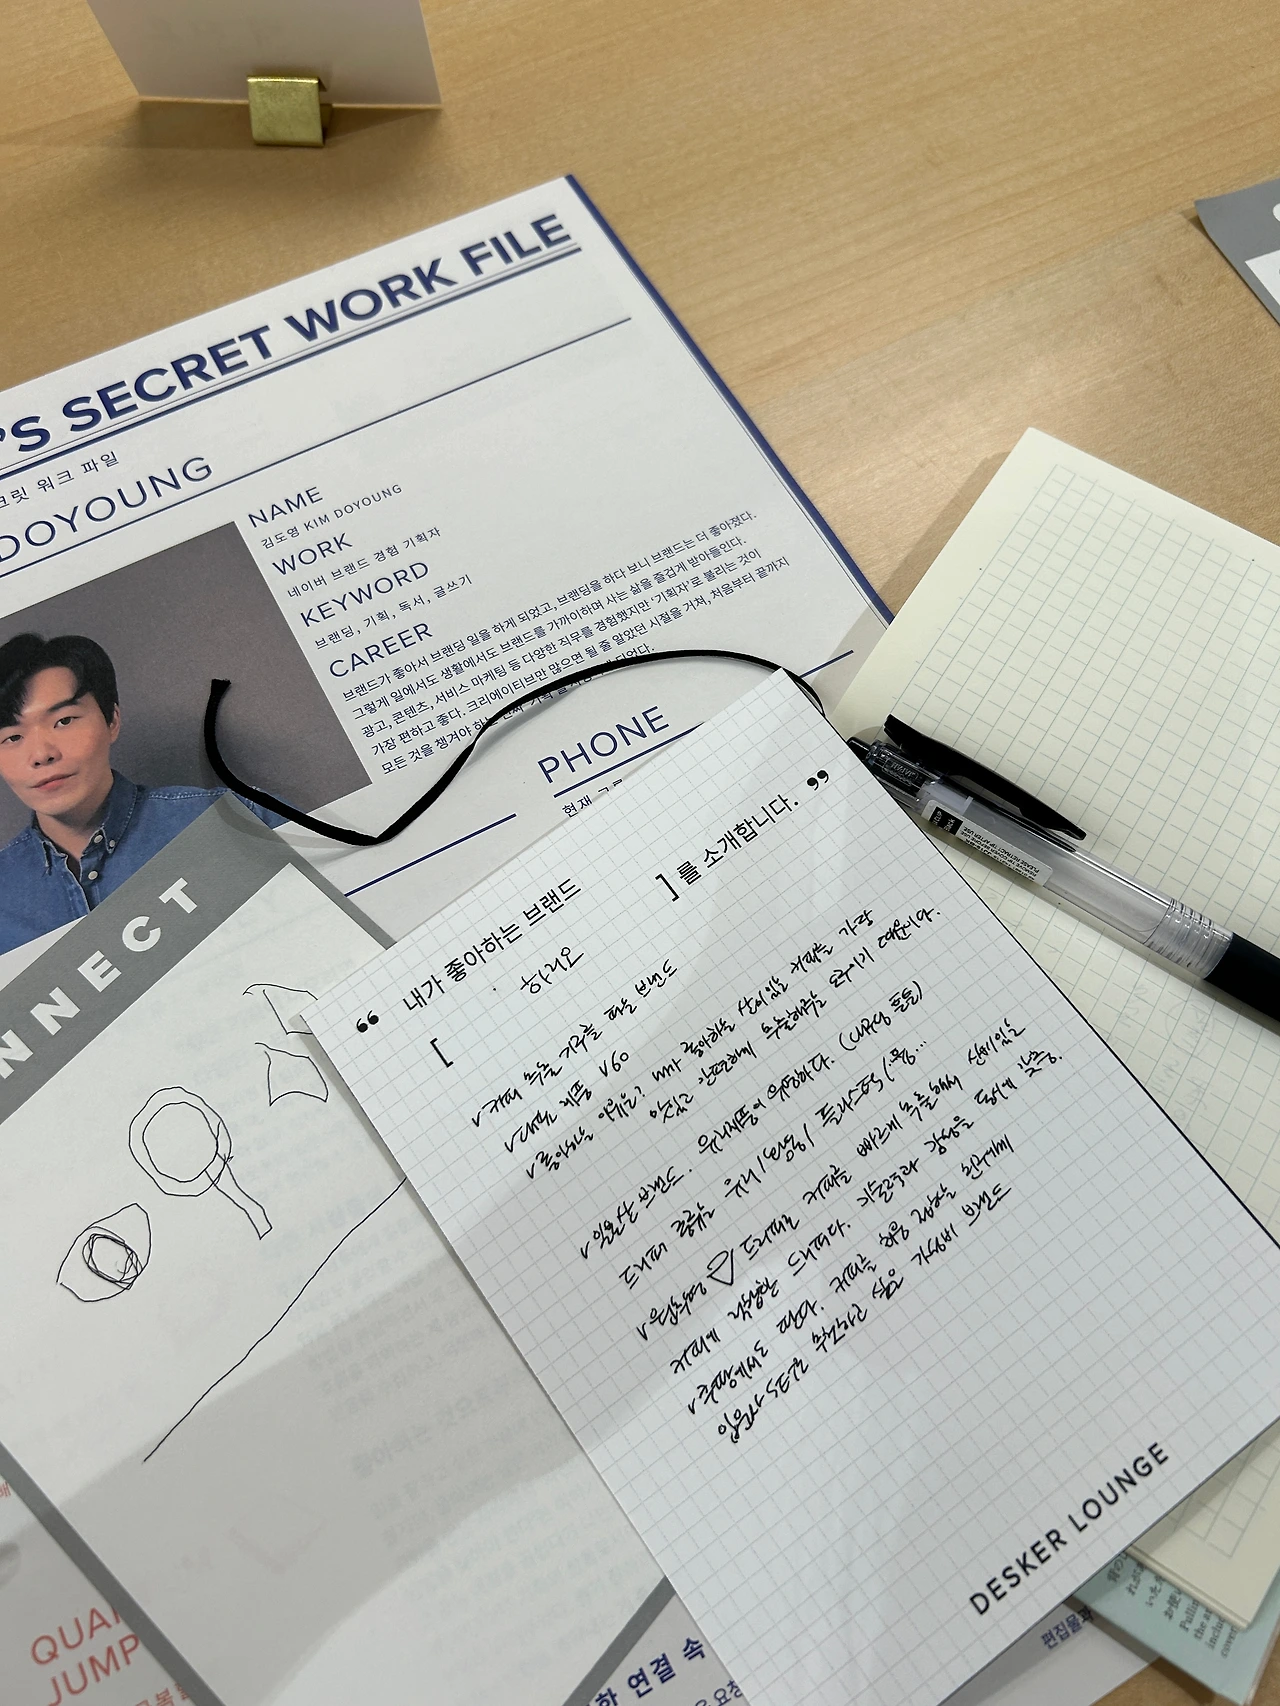 'S SECRET WORK FILE
크릿 워크 파일
DOYOUNG
NAME
김도영 KIM DOYOUNG
WORK
네이버 브랜드 경험 기획자
KEYWORD
브랜딩, 기획, 독서, 글쓰기
CAREER
브랜드가 좋아서 브랜딩 일을 하게 되었고, 브랜딩을 하다 보니 브랜드는 더 좋아졌다.
그렇게 일에서도 생활에서도 브랜드를 가까이하며 사는 삶을 즐겁게 받아들인다.
광고, 콘텐츠, 서비스 마케팅 등 다양한 직무를 경험했지만 '기획자'로 불리는 것이
가장 편하고 좋다. 크리에이티브만 많으면 될 줄 알았던 시절을 거쳐, 처음부터 끝까지
모든 것을 챙겨야 하는 되었다.
PHONE
현재
NNECT
“ 내가 좋아하는 브랜드
[ 하리오 ] 를 소개합니다. ”
v 커피 추출 기구를 파는 브랜드
v 대표 제품 V60
v 좋아하는 이유는? 내가 좋아하는 산미있는 커피를 가장
맛있고 간편하게 추출해주는 도구이기 때문이다.
v 일본산 브랜드. 유리제품이 유명하다. (내구성 튼튼)
드리퍼 종류는 유리 / / 플라스틱 /
v 원추형 드리퍼는 커피를 빠르게 추출해서 산미있는
커피에 적합한 드리퍼다. 기술력과 감성을 동시에 갖춤.
v 쿠팡에서도 판다. 커피를 처음 접하는 친구에게
입문자 SET로 추천하고 싶은 가성비 브랜드
DESKER LOUNGE
QUAN
JUMP
연결 속
요청
편집물과